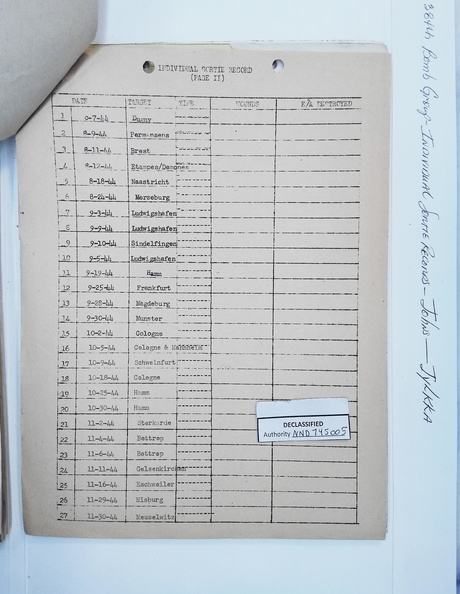 INDIVIDUAL SORTIE RECORD
(PAGE II)
DATE TARGET TIME WOUNDS E/A DESTROYED
1 8-7-44 Dugny
2 8-9-44 Permansens
3 8-11-44 Brest
4 8-12-44 Etampes/
5 8-18-44 Maastricht
6 8-24-44 Merseburg
7 9-3-44 Ludwigshafen
8 9-9-44 Ludwigshafen
9 9-10-44 Sindelfingen
10 9-5-44 Ludwigshafen
11 9-19-44 Hamm
12 9-25-44 Frankfurt
13 9-28-44 Magdeburg
14 9-30-44 Munster
15 10-2-44 Cologne
16 10-5-44 Cologne & MANNHEIM
17 10-9-44 Schweinfurt
18 10-18-44 Cologne
19 10-25-44 Hamm
20 10-30-44 Hamm
21 11-2-44 Sterkarde
22 11-4-44 Bottrop
23 11-6-44 Bottrop
24 11-11-44 Gelsenkirchen
25 11-16-44 Eschweiler
26 11-29-44 Misburg
27 11-30-44 Meuselwitz
DECLASSIFIED
Authority NND 745005
384th Bomb Group - Individual Sortie Records - Johns — Tylkka